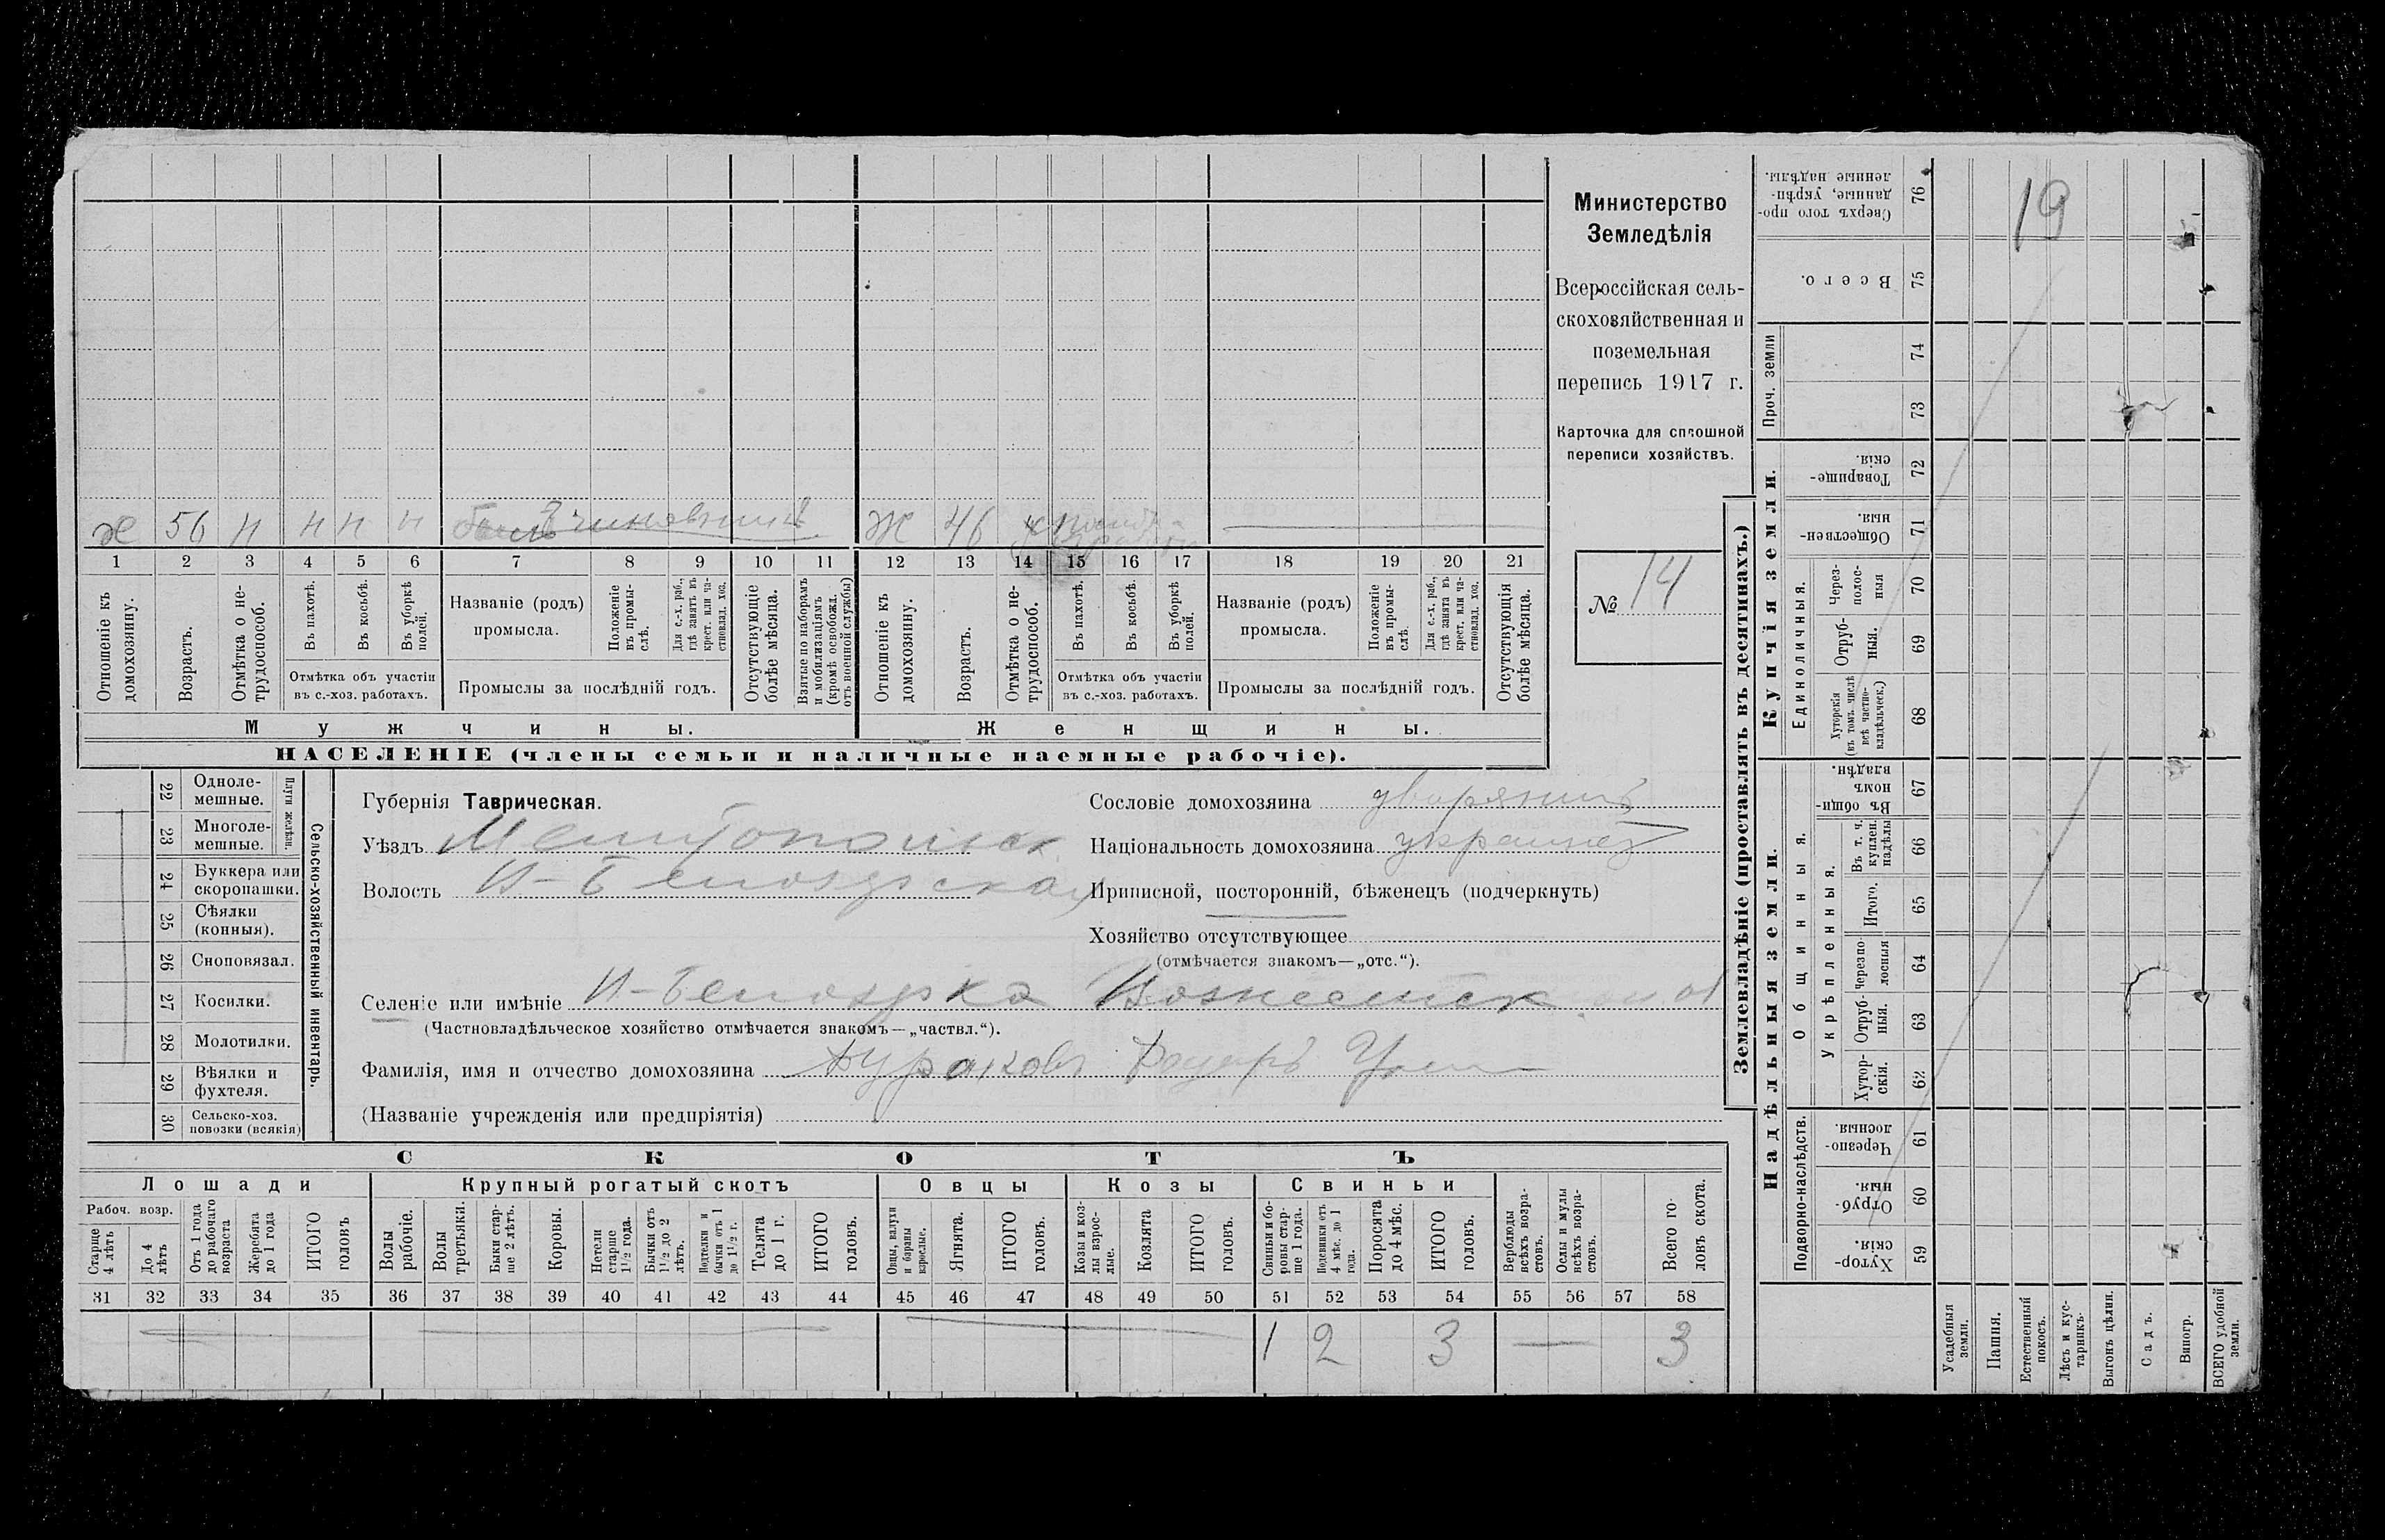 Министерство
Земледѣлія
Всероссійская сель-
скохозяйственная и
поземельная
перепись 1917 г.
Карточка для сплошной
переписи хозяйствъ.
№ 14
х 56 н н н н чиновникъ Ж 46
1 2 3 4 5 6 7 8 9 10 11 12 13 14 15 16 17 18 19 20 21
Отношеніе къ домохозяину.
Возрастъ.
Отмѣтка о не-трудоспособ.
Въ пахотѣ.
Въ косьбѣ.
Въ уборкѣ полей.
Отмѣтка объ участіи
въ с.-хоз. работахъ.
Названіе (родъ)
промысла.
Положеніе въ промы-слѣ.
Для с.-х. раб., гдѣ занятъ въ крест. или ча-стновлад. хоз.
Промыслы за послѣдній годъ.
Отсутствующіе болѣе мѣсяца.
Взятые по наборамъ и мобилизаціямъ (кромѣ освобожд. отъ военной службы)
Отношеніе къ домохозяину.
Возрастъ.
Отмѣтка о не-трудоспособ.
Въ пахотѣ.
Въ косьбѣ.
Въ уборкѣ полей.
Отмѣтка объ участіи
въ с.-хоз. работахъ.
Названіе (родъ)
промысла.
Положеніе въ промы-слѣ.
Для с.-х. раб., гдѣ занята въ крест. или ча-стновлад. хоз.
Промыслы за послѣдній годъ.
Отсутствующія болѣе мѣсяца.
Мужчины.
Женщины.
НАСЕЛЕНІЕ (члены семьи и наличные наемные рабочіе).
22 Одноле-мешные.
23 Многоле-мешные.
Плуги желѣзн.
24 Буккера или скоропашки.
25 Сѣялки (конныя).
26 Сноповязал.
27 Косилки.
28 Молотилки.
29 Вѣялки и фухтеля.
30 Сельско-хоз. повозки (всякія)
Сельско-хозяйственный инвентарь.
Губернія Таврическая.
Уѣздъ Мелитопольск
Волость Н-Белозерская
Сословіе домохозяина дворянинъ
Національность домохозяина украинец
Приписной, посторонній, бѣженецъ (подчеркнуть)
Хозяйство отсутствующее
(отмѣчается знакомъ—„отс.“).
Селеніе или имѣніе Н-Белозерка
(Частновладѣльческое хозяйство отмѣчается знакомъ—„частвл.“).
Фамилія, имя и отчество домохозяина
(Названіе учрежденія или предпріятія)
СКОТЪ
Лошади
Крупный рогатый скотъ
Овцы
Козы
Свиньи
Рабоч. возр.
Старще 4 лѣтъ
До 4 лѣтъ
Отъ 1 года до рабочаго возраста
Жеребята до 1 года
ИТОГО головъ
Волы рабочіе.
Волы третьяки.
Быки стар-ше 2 лѣтъ.
Коровы.
Нетели старше 1½ года.
Бычки отъ 1½ до 2 лѣтъ.
Подтелки и бычки отъ 1 до 1½ г.
Телята до 1 г.
ИТОГО головъ.
Овцы, валухи и бараны взрослые.
Ягнята.
ИТОГО головъ.
Козы и коз-лы взрос-лые.
Козлята
ИТОГО головъ.
Свиньи и бо-ровы стар-ше 1 года.
Подсвинки отъ 4 мѣс. до 1 года.
Поросята до 4 мѣс.
ИТОГО головъ.
Верблюды всѣхъ возра-стовъ.
Ослы и мулы всѣхъ возра-стовъ.
Всего го-ловъ скота.
31 32 33 34 35 36 37 38 39 40 41 42 43 44 45 46 47 48 49 50 51 52 53 54 55 56 57 58
1 2 3 — 3
Землевладѣніе (проставлять въ десятинахъ.)
Надѣльныя земли.
Купчія земли.
Проч. земли
Подворно-наслѣдств.
Общинныя.
Укрѣпленныя.
Единоличныя.
Хутор-скія. 59
Отруб-ныя. 60
Черезпо-лосныя. 61
Хутор-скія. 62
Отруб-ныя. 63
Черезпо-лосныя 64
Итого. 65
Въ т. ч. куплен. надѣлы 66
Въ общи-номъ владѣн. 67
Хуторскія (въ томъ числѣ всѣ частно-владѣльческ.) 68
Отруб-ныя. 69
Через-полос-ныя 70
Обществен-ныя. 71
Товарище-скія. 72
73
74
Всего. 75
Сверхъ того про-данные, укрѣп-ленные надѣлы. 76
19
Усадебныя земли.
Пашня.
Естественный покосъ.
Лѣсъ и кус-тарникъ.
Выгонъ цѣлин.
Садъ.
Виногр.
ВСЕГО удобной земли.